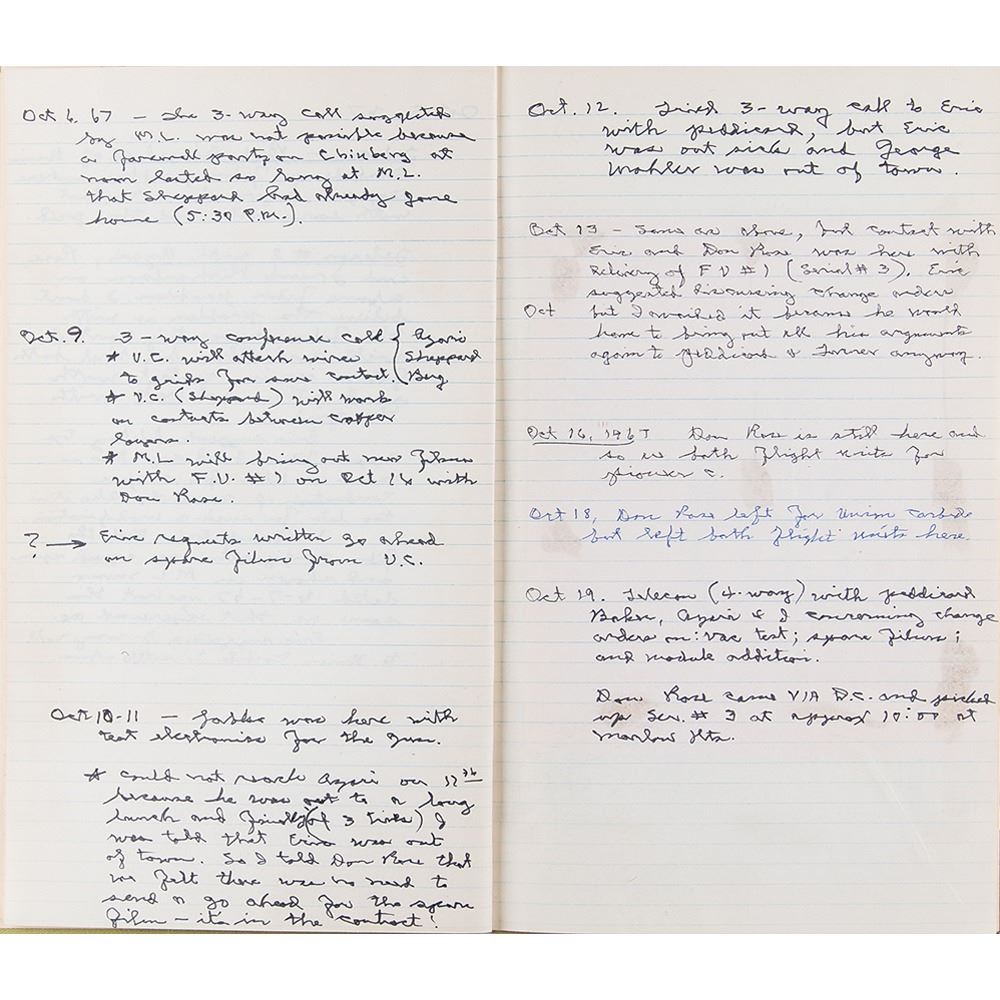 Oct 6, 67 — The 3-way call suggested
by M.L. was not possible because
a farewell party on Chinberg at
noon lasted so long at M.L.
that Sheppard had already gone
home (5:30 P.M.).
Oct. 9. 3-way conference call { Azari
* U.C. will attach wire Sheppard
to grids for sure contact. Berg
* U.C. (Sheppard) will work
on contacts between copper
layers.
* M.L will bring out new films
with F.U. # 1 on Oct 16 with
Don Rose.
? → Eric requests written go ahead
on spare films from U.C.
Oct 10-11 — was here with
test electronics for the gun.
* Could not reach Azari on 11th
because he was out to a long
lunch and finally (of 3 times) I
was told that Eric was out
of town. So I told Don Rose that
we felt there was no need to
send a go ahead for the spare
film — it's in the contract!
Oct. 12. Tried 3-way call to Eric
with Peddicord, but Eric
was out sick and George
Wahler was out of town.
Oct 13 — Same as above, but contact with
Eric and Don Rose was here with
delivery of F U # 1 (Serial # 3). Eric
suggested discussing change orders
Oct but I avoided it because he would
have to bring out all his arguments
again to Peddicord & anyway.
Oct 16, 1967 Don Rose is still here and
so is both flight units for
pioneer C.
Oct 18, Don Rose left for Union Carbide
but left both flight units here.
Oct 19. Telecon (4-way) with Peddicord
Baker, Azari & I concerning change
orders on: vac test; spare films;
and module addition.
Don Rose came VIA D.C. and picked
up Ser. # 3 at approx 10:00 at
Marlow Hts.